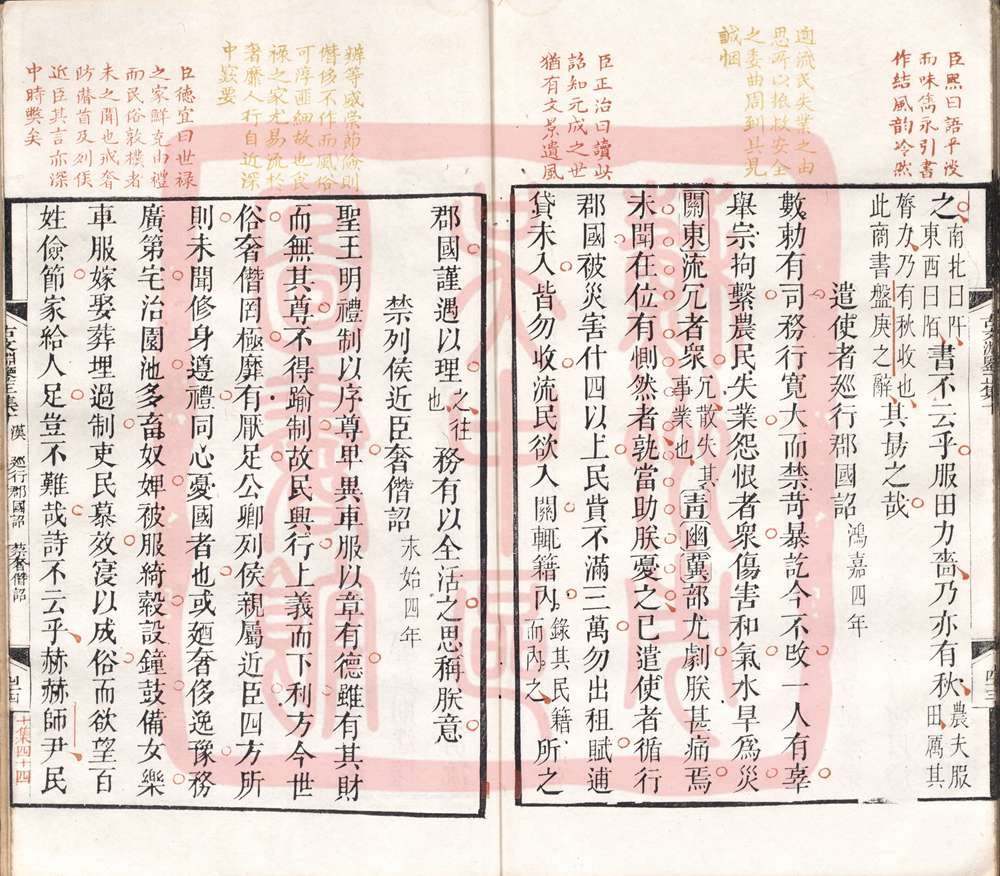 臣熙曰語乎淡
而味雋永引書
作結風韵冷然
適流民失業之由
思所以振救安全
之委曲周到具見
誠悃
臣正治曰讀此
詔知元成之世
猶有文景遺風
之南北曰阡東西曰陌書不云乎服田力嗇乃亦有秋農夫服田厲其
膂力乃有秋收也此商書盤庚之辭其勗之哉
遣使者廵行郡國詔鴻嘉四年
數勅有司務行寛大而禁苛暴訖今不攺一人有辜
舉宗拘繫農民失業怨恨者衆傷害和氣水旱爲災
關東流冗者衆冗散失其事業也青幽冀部尤劇朕甚痛焉
未聞在位有惻然者孰當助朕憂之已遣使者循行
郡國被災害什四以上民貲不滿三萬勿出租賦逋
貸未入皆勿收流民欲入關輒籍內錄其民籍而內之所之
辨等威崇節儉則
僭侈不作而風俗
可淳匪細故也食
祿之家尤易流於
奢靡人行自近深
中窾要
臣德宜曰世禄
之家鮮克由禮
而民俗敦樸者
未之聞也戒奢
防僭首及列侯
近臣其言亦深
中時弊矣
郡國謹遇以理之往也務有以全活之思稱朕意
禁列侯近臣奢僭詔永始四年
聖王明禮制以序尊卑異車服以章有德雖有其財
而無其尊不得踰制故民興行上義而下利方今世
俗奢僭罔極靡有厭足公卿列侯親屬近臣四方所
則未聞修身遵禮同心憂國者也或廼奢侈逸豫務
廣第宅治園池多畜奴婢被服綺縠設鐘鼓備女樂
車服嫁娶葬埋過制吏民慕效寖以成俗而欲望百
姓儉節家給人足豈不難哉詩不云乎赫赫師尹民
漢
廵行郡國詔
禁奢僭詔
十集四十四